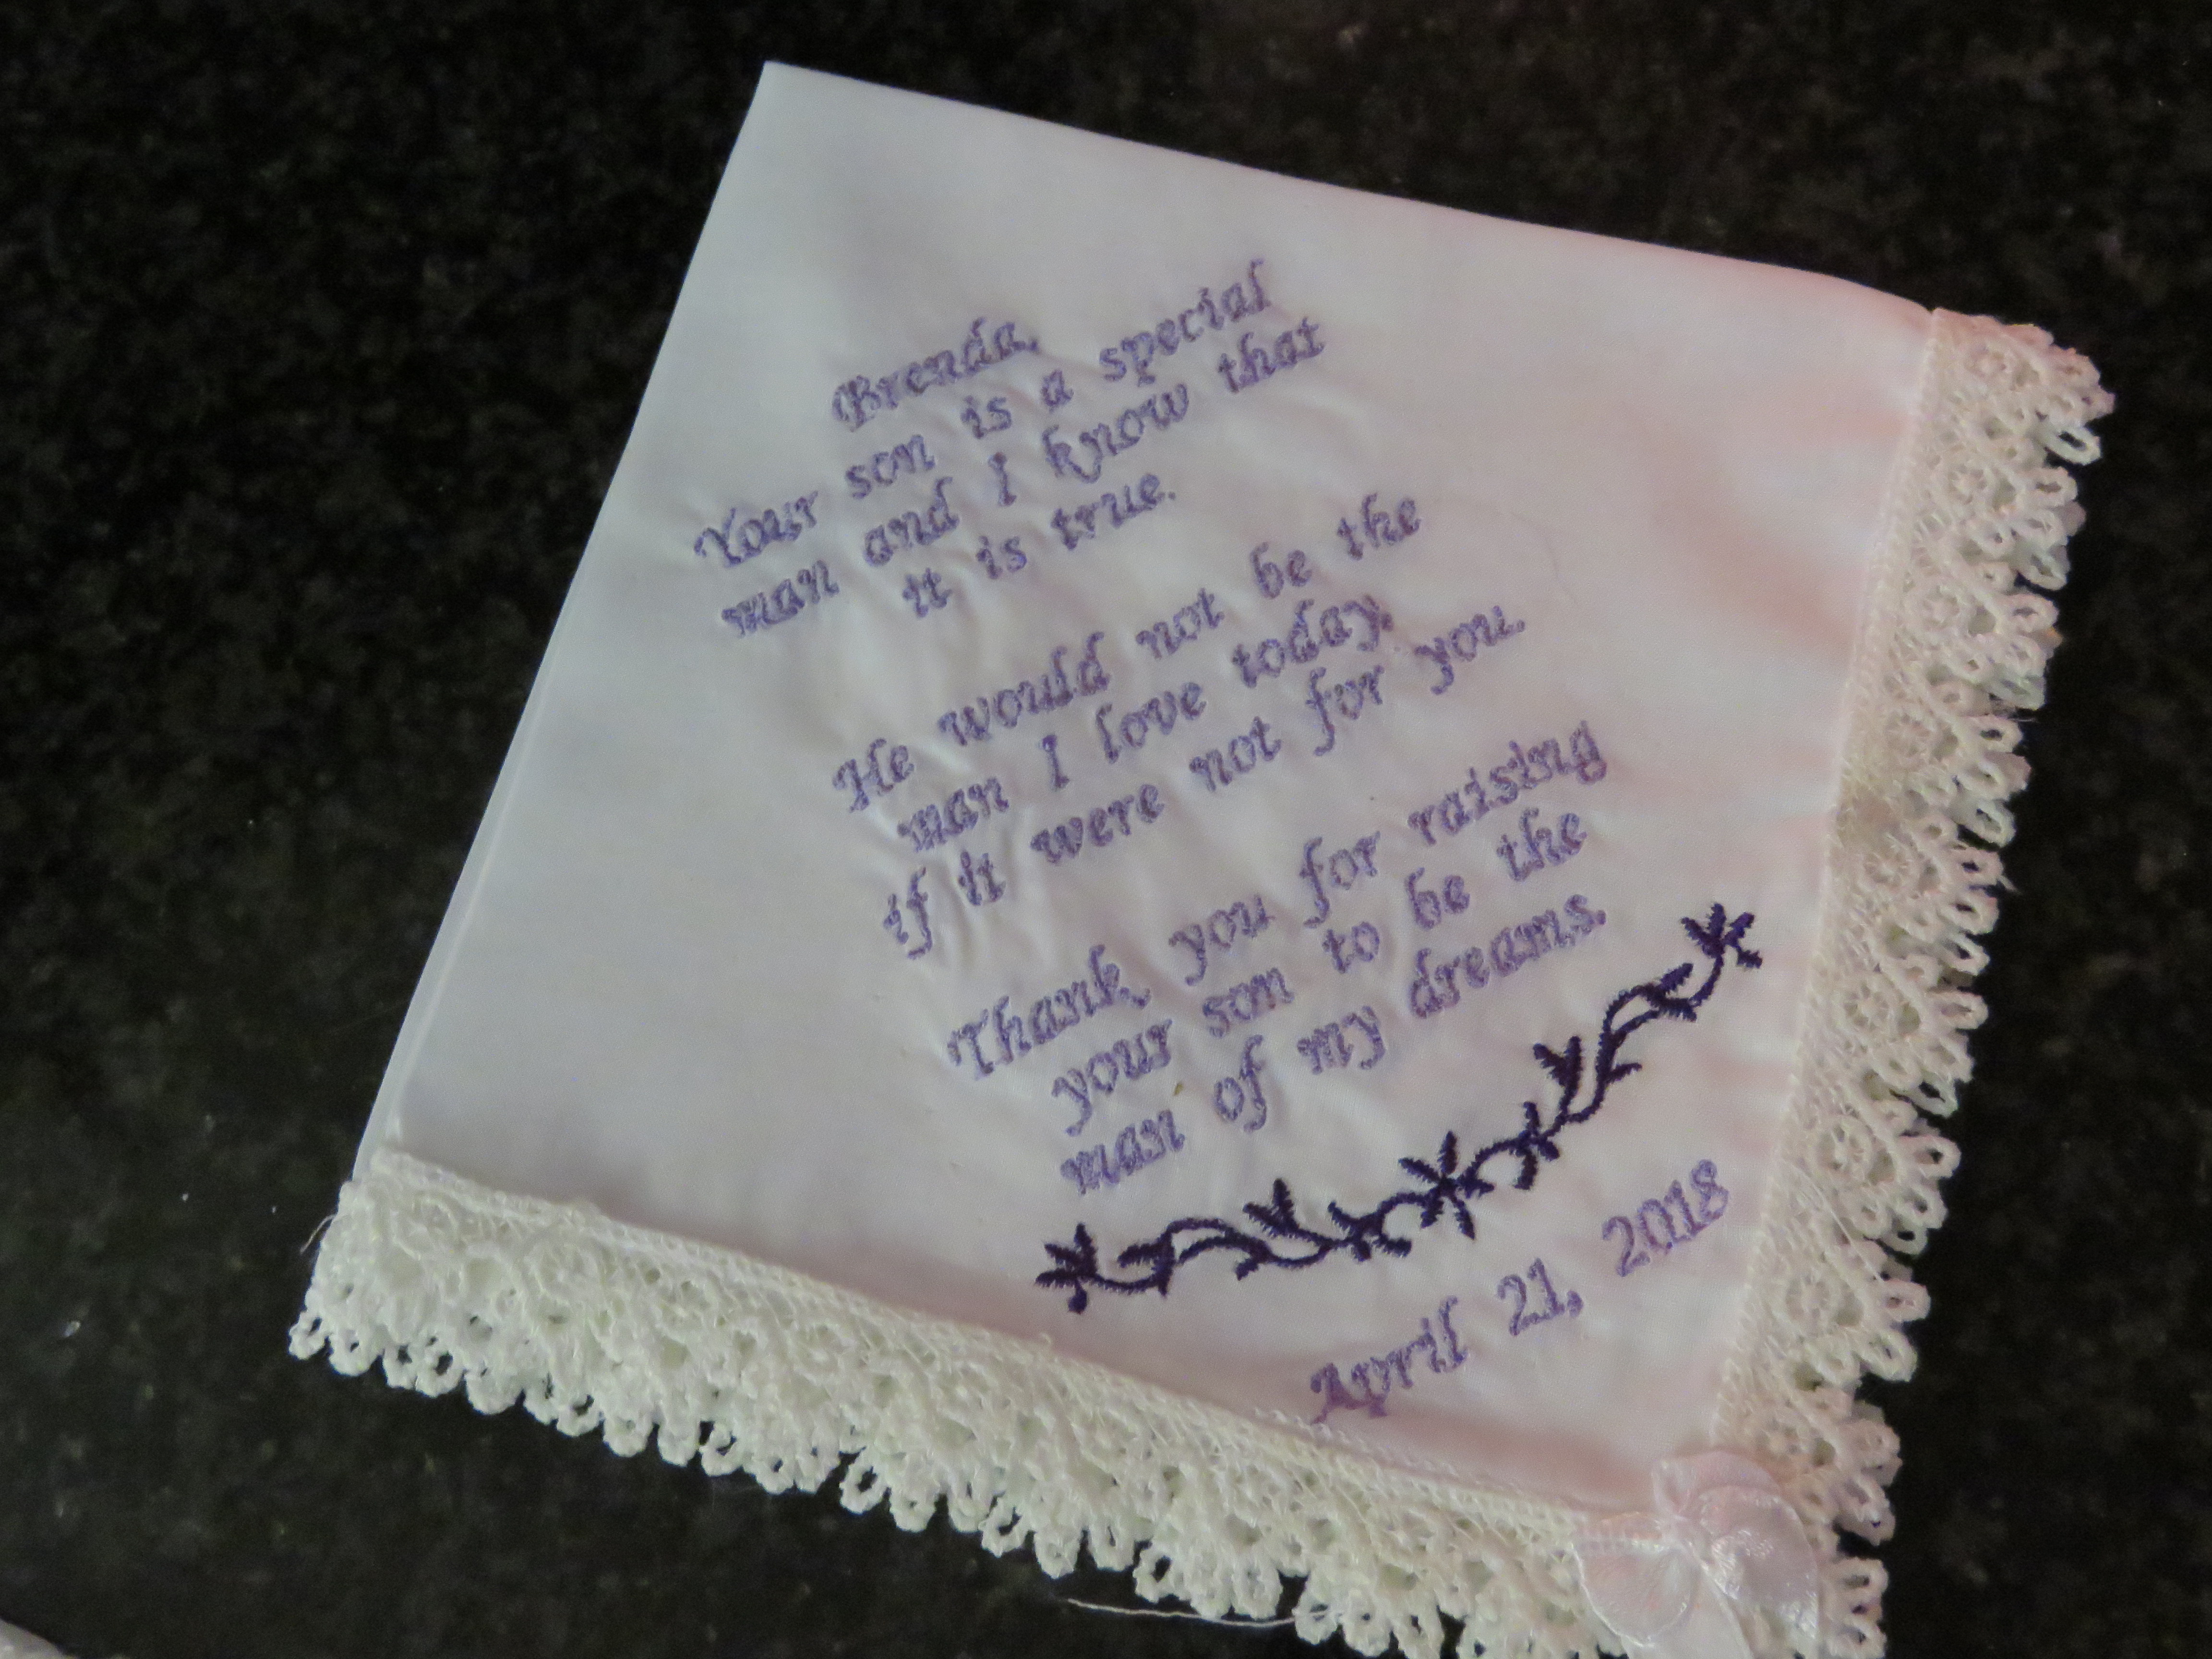 Brenda,
Your son is a special
man and I know that
it is true.
He would not be the
man I love today,
if it were not for you.
Thank you for raising
your son to be the
man of my dreams.
April 21, 2018